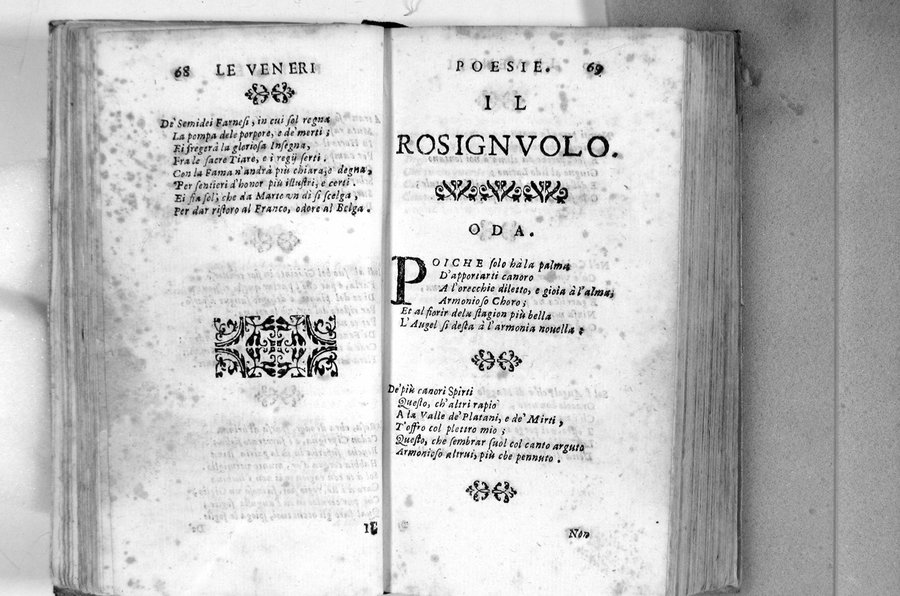 68 LE VENERI
De' Semidei Farnesi, in cui sol regna
La pompa dele porpore, e de' merti;
Ei fregerà la gloriosa Insegna,
Fra le sacre Tiare, e i regij serti.
Con la Fama n'andrà più chiara, e degna,
Per sentieri d'honor più illustri, e certi.
Ei fia sol, che da Marte vn dì si scelga,
Per dar ristoro al Franco, odore al Belga.
Il
POESIE. 69
IL
ROSIGNVOLO.
ODA.
POICHE solo hà la palma
D'apportarti canoro
A l'orecchie diletto, e gioia à l'alma,
Armonioso Choro;
Et al fiorir dela stagion più bella
L'Augel si desta à l'armonia nouella:
De' più canori Spirti
Questo, ch'altri rapìo
A la Valle de' Platani, e de' Mirti,
T'offro col plettro mio;
Questo, che sembrar suol col canto arguto
Armonioso altrui, più che pennuto.
Non